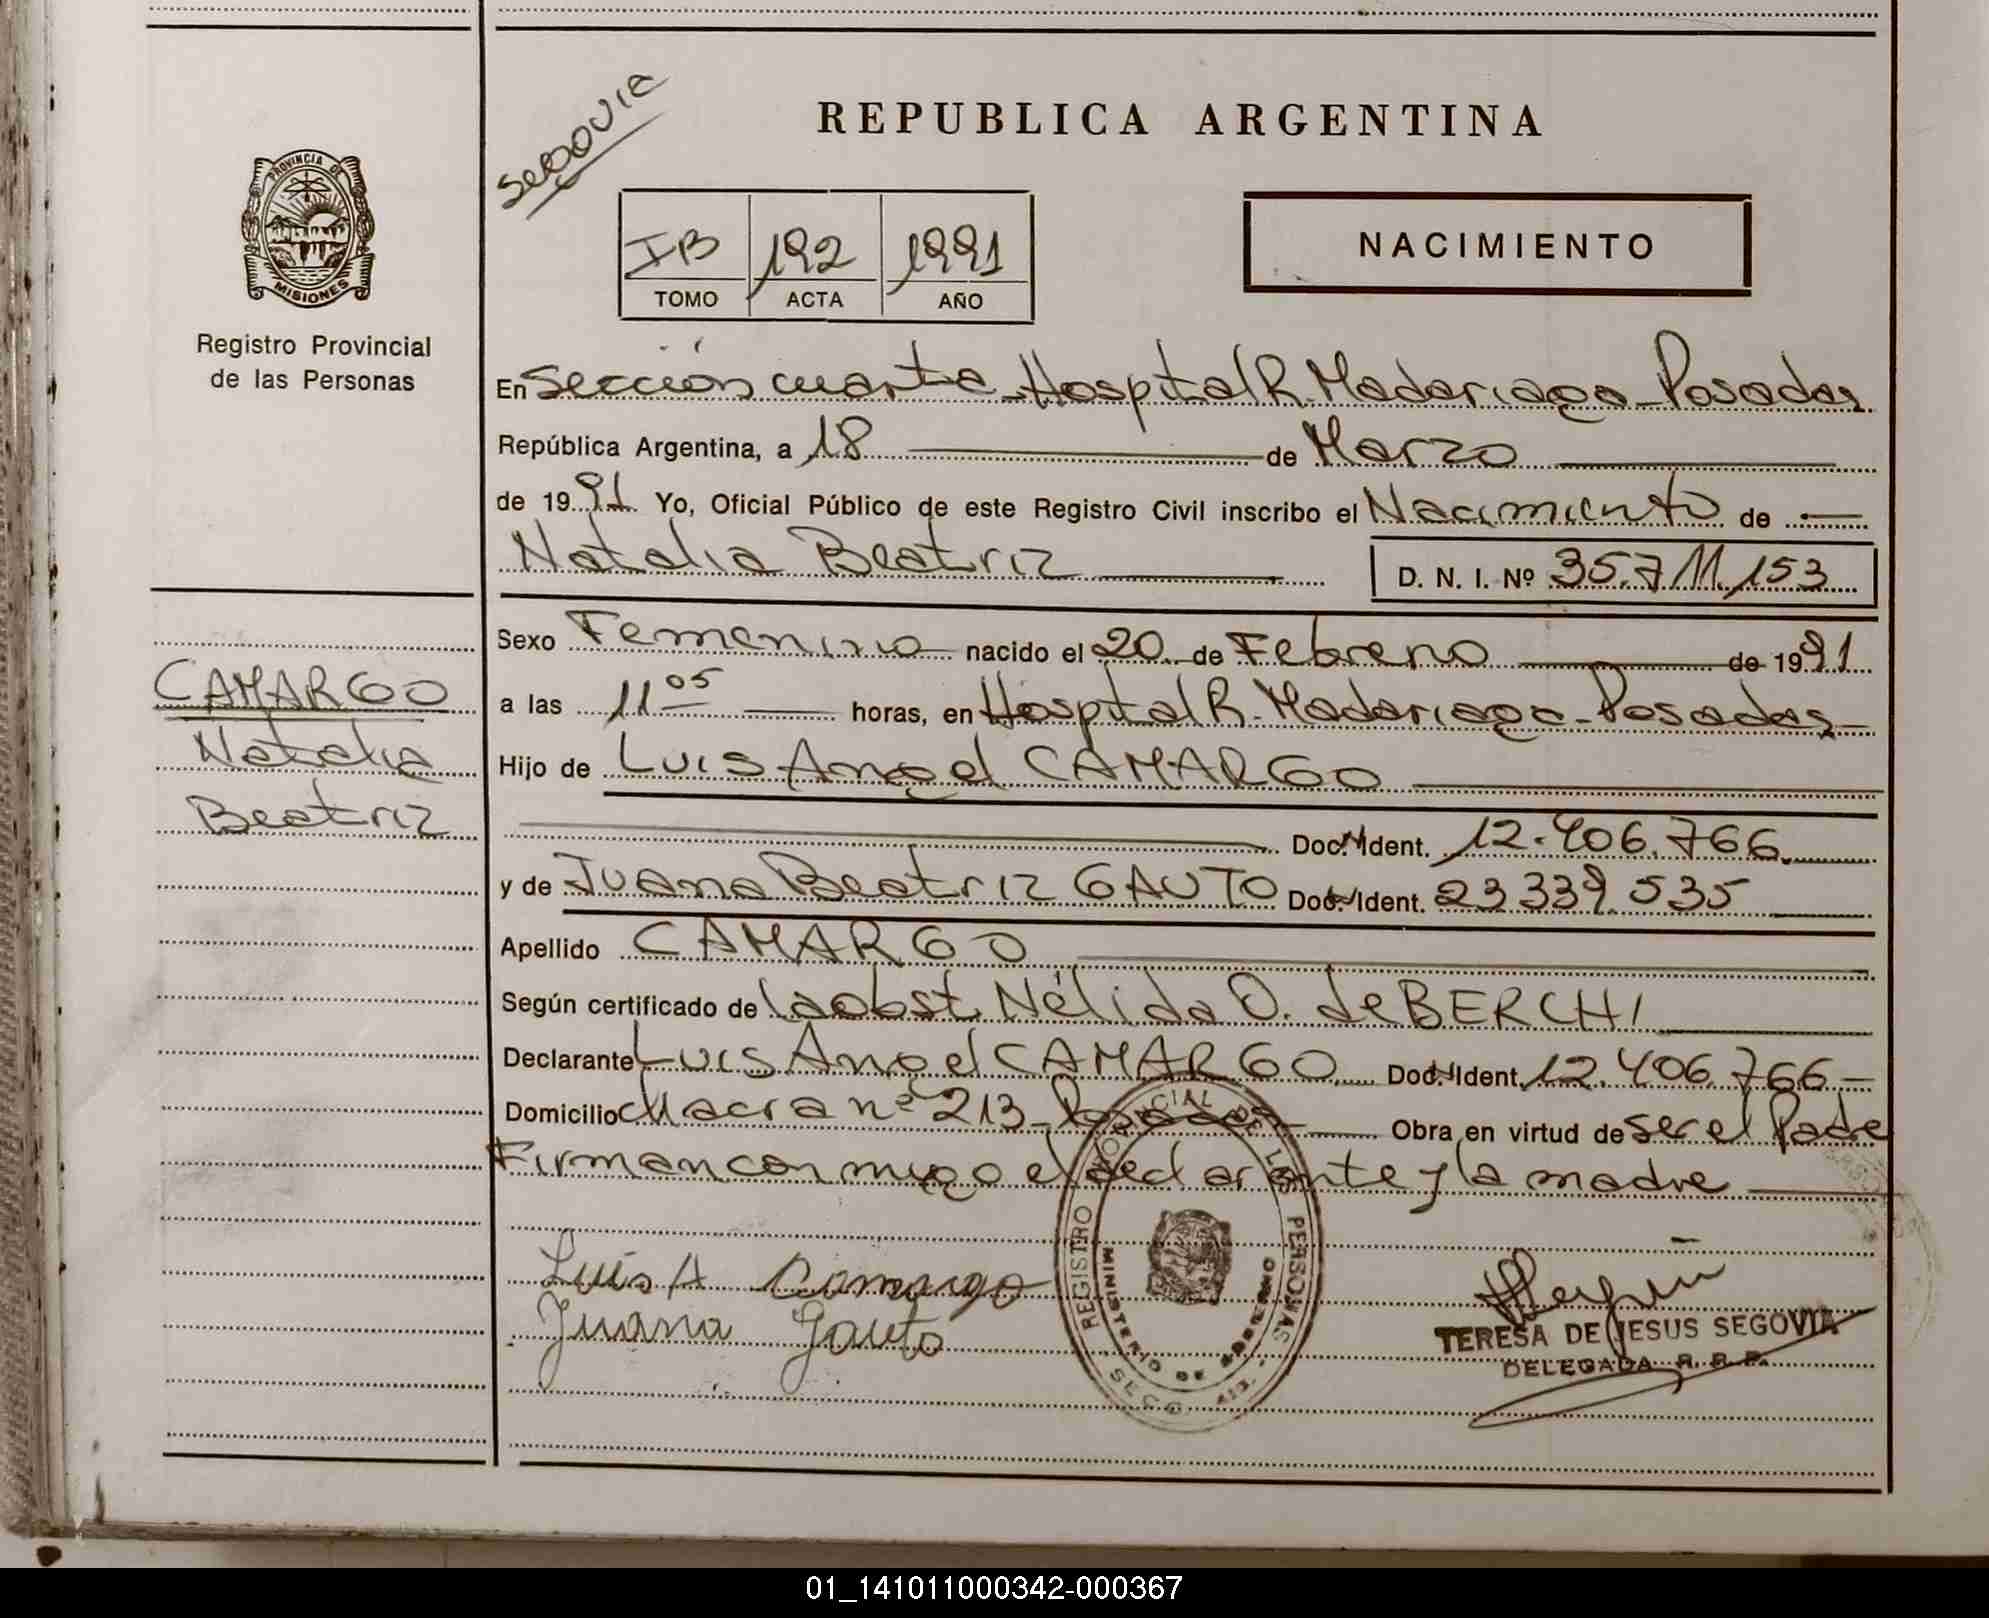 REPUBLICA ARGENTINA
Segovia
PROVINCIA DE
MISIONES
Registro Provincial
de las Personas
IB 192 1991
TOMO ACTA AÑO
NACIMIENTO
En Sección cuarta - Hospital R. Madariaga - Posadas
República Argentina, a 18 de Marzo
de 19 91 Yo, Oficial Público de este Registro Civil inscribo el Nacimiento de
Natalia Beatriz D. N. I. Nº 35.711.153
Sexo Femenino nacido el 20 de Febrero de 19 91
CAMARGO
Natalia
Beatriz
a las 11 05 horas, en Hospital R. Madariaga - Posadas
Hijo de Luis Angel CAMARGO
Doc. Ident. 12.406.766
y de Juana Beatriz GAUTO Doc. Ident. 23 339 535
Apellido CAMARGO
Según certificado de la obst. Nélida O. de BERCHI
Declarante Luis Angel CAMARGO Doc. Ident. 12.406.766
Domicilio Chacra nº 213 - Posadas Obra en virtud de ser el Padre
Firman conmigo el declarante y la madre
Luis A Camargo
Juana Gauto
REGISTRO PROVINCIAL DE LAS PERSONAS
MINISTERIO DE GOBIERNO
TERESA DE JESUS SEGOVIA
DELEGADA R. P. P.
01_141011000342-000367